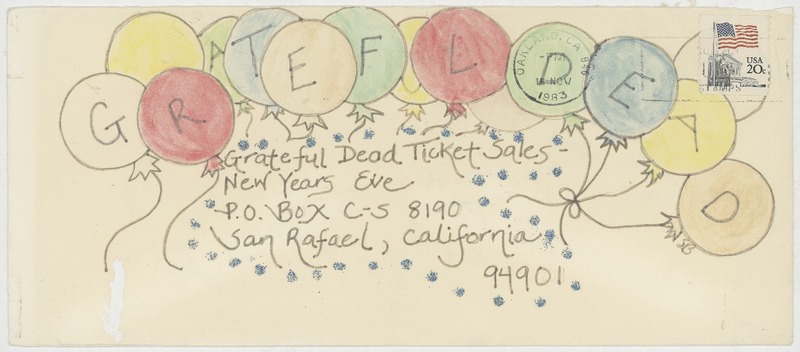 GRATEFUL DEAD
OAKLAND, CA
PM
15 NOV
1983
USA
20c
Grateful Dead Ticket Sales -
New Years Eve
P.O. Box C-S 8190
San Rafael, California
94901